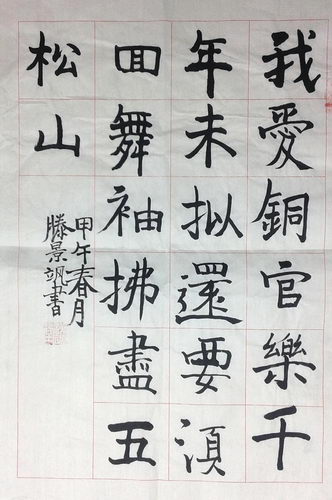 我愛銅官樂千
年未拟還要湏
回舞袖拂盡五
松山
甲午春月
滕景飒书